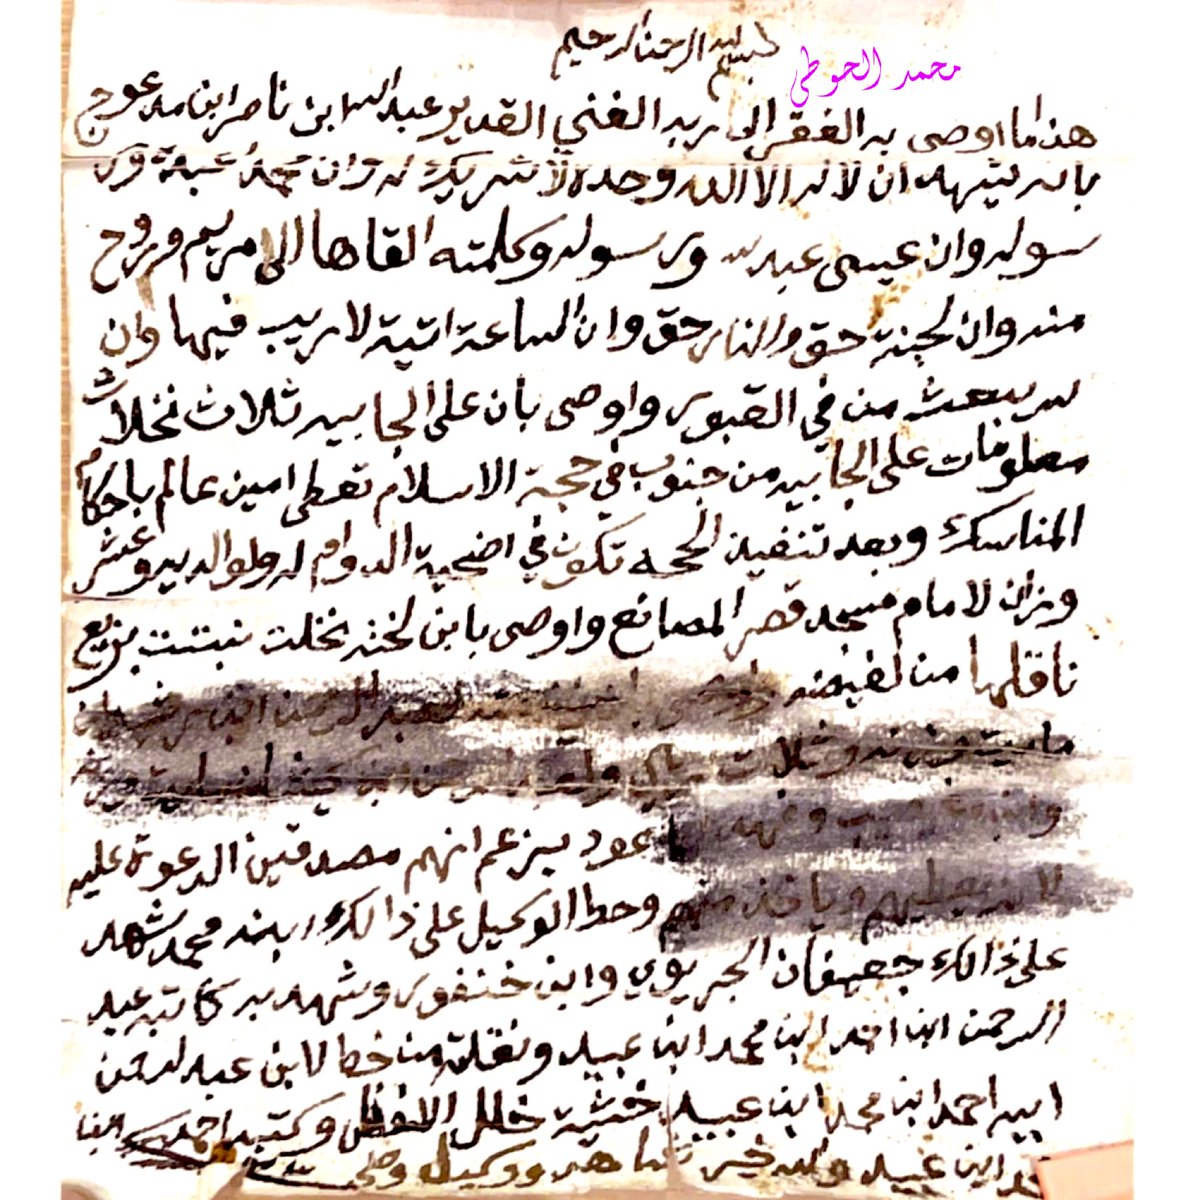 بسم الله الرحمن الرحيم
محمد الحوطي
هذا ما اوصى به الفقير الى ربه الغني القدير عبد الله ابن ناصر ابن مدعوج
بانه يشهد ان لا اله الا الله وحده لا شريك له وان محمد عبده ور
سوله وان عيسى عبد الله ورسوله وكلمته القاها الى مريم وروح
منه وان لجنة حق والنار حق وان الساعة اتية لا ريب فيها وان
الله يبعث من في القبور واوصى بان على الجابيه ثلاث نخلات
معلومات على الجابيه من جنوب في حجة الاسلام تعطى امين عالم باحكام
المناسك وبعد تنفيذ الحجه تكون في اضحية الدوام له ولوالديه وعشر
وزان لامام مسجد قصر المصانع واوصى بابن لخته نخلت نبتت بزيع
ناقلها من
وثلاث
عود يزعم انهم مصدقين الدعوة عليه
لانه يعطيهم وياخذ منهم وحط الوكيل على ذالك ابنه محمد شهد
على ذالك جعيفان الجربوي وابن خنفور وشهد به كاتبه عبد
الرحمن ابن احمد ابن محمد ابن عبيد ونقلته من خط الابن عبد الله من
ابيه احمد ابن محمد ابن عبيد خشية خلل الالفظ وكتبه احمد
ابن عبيد والله خير شاهد ووكيل وصلى